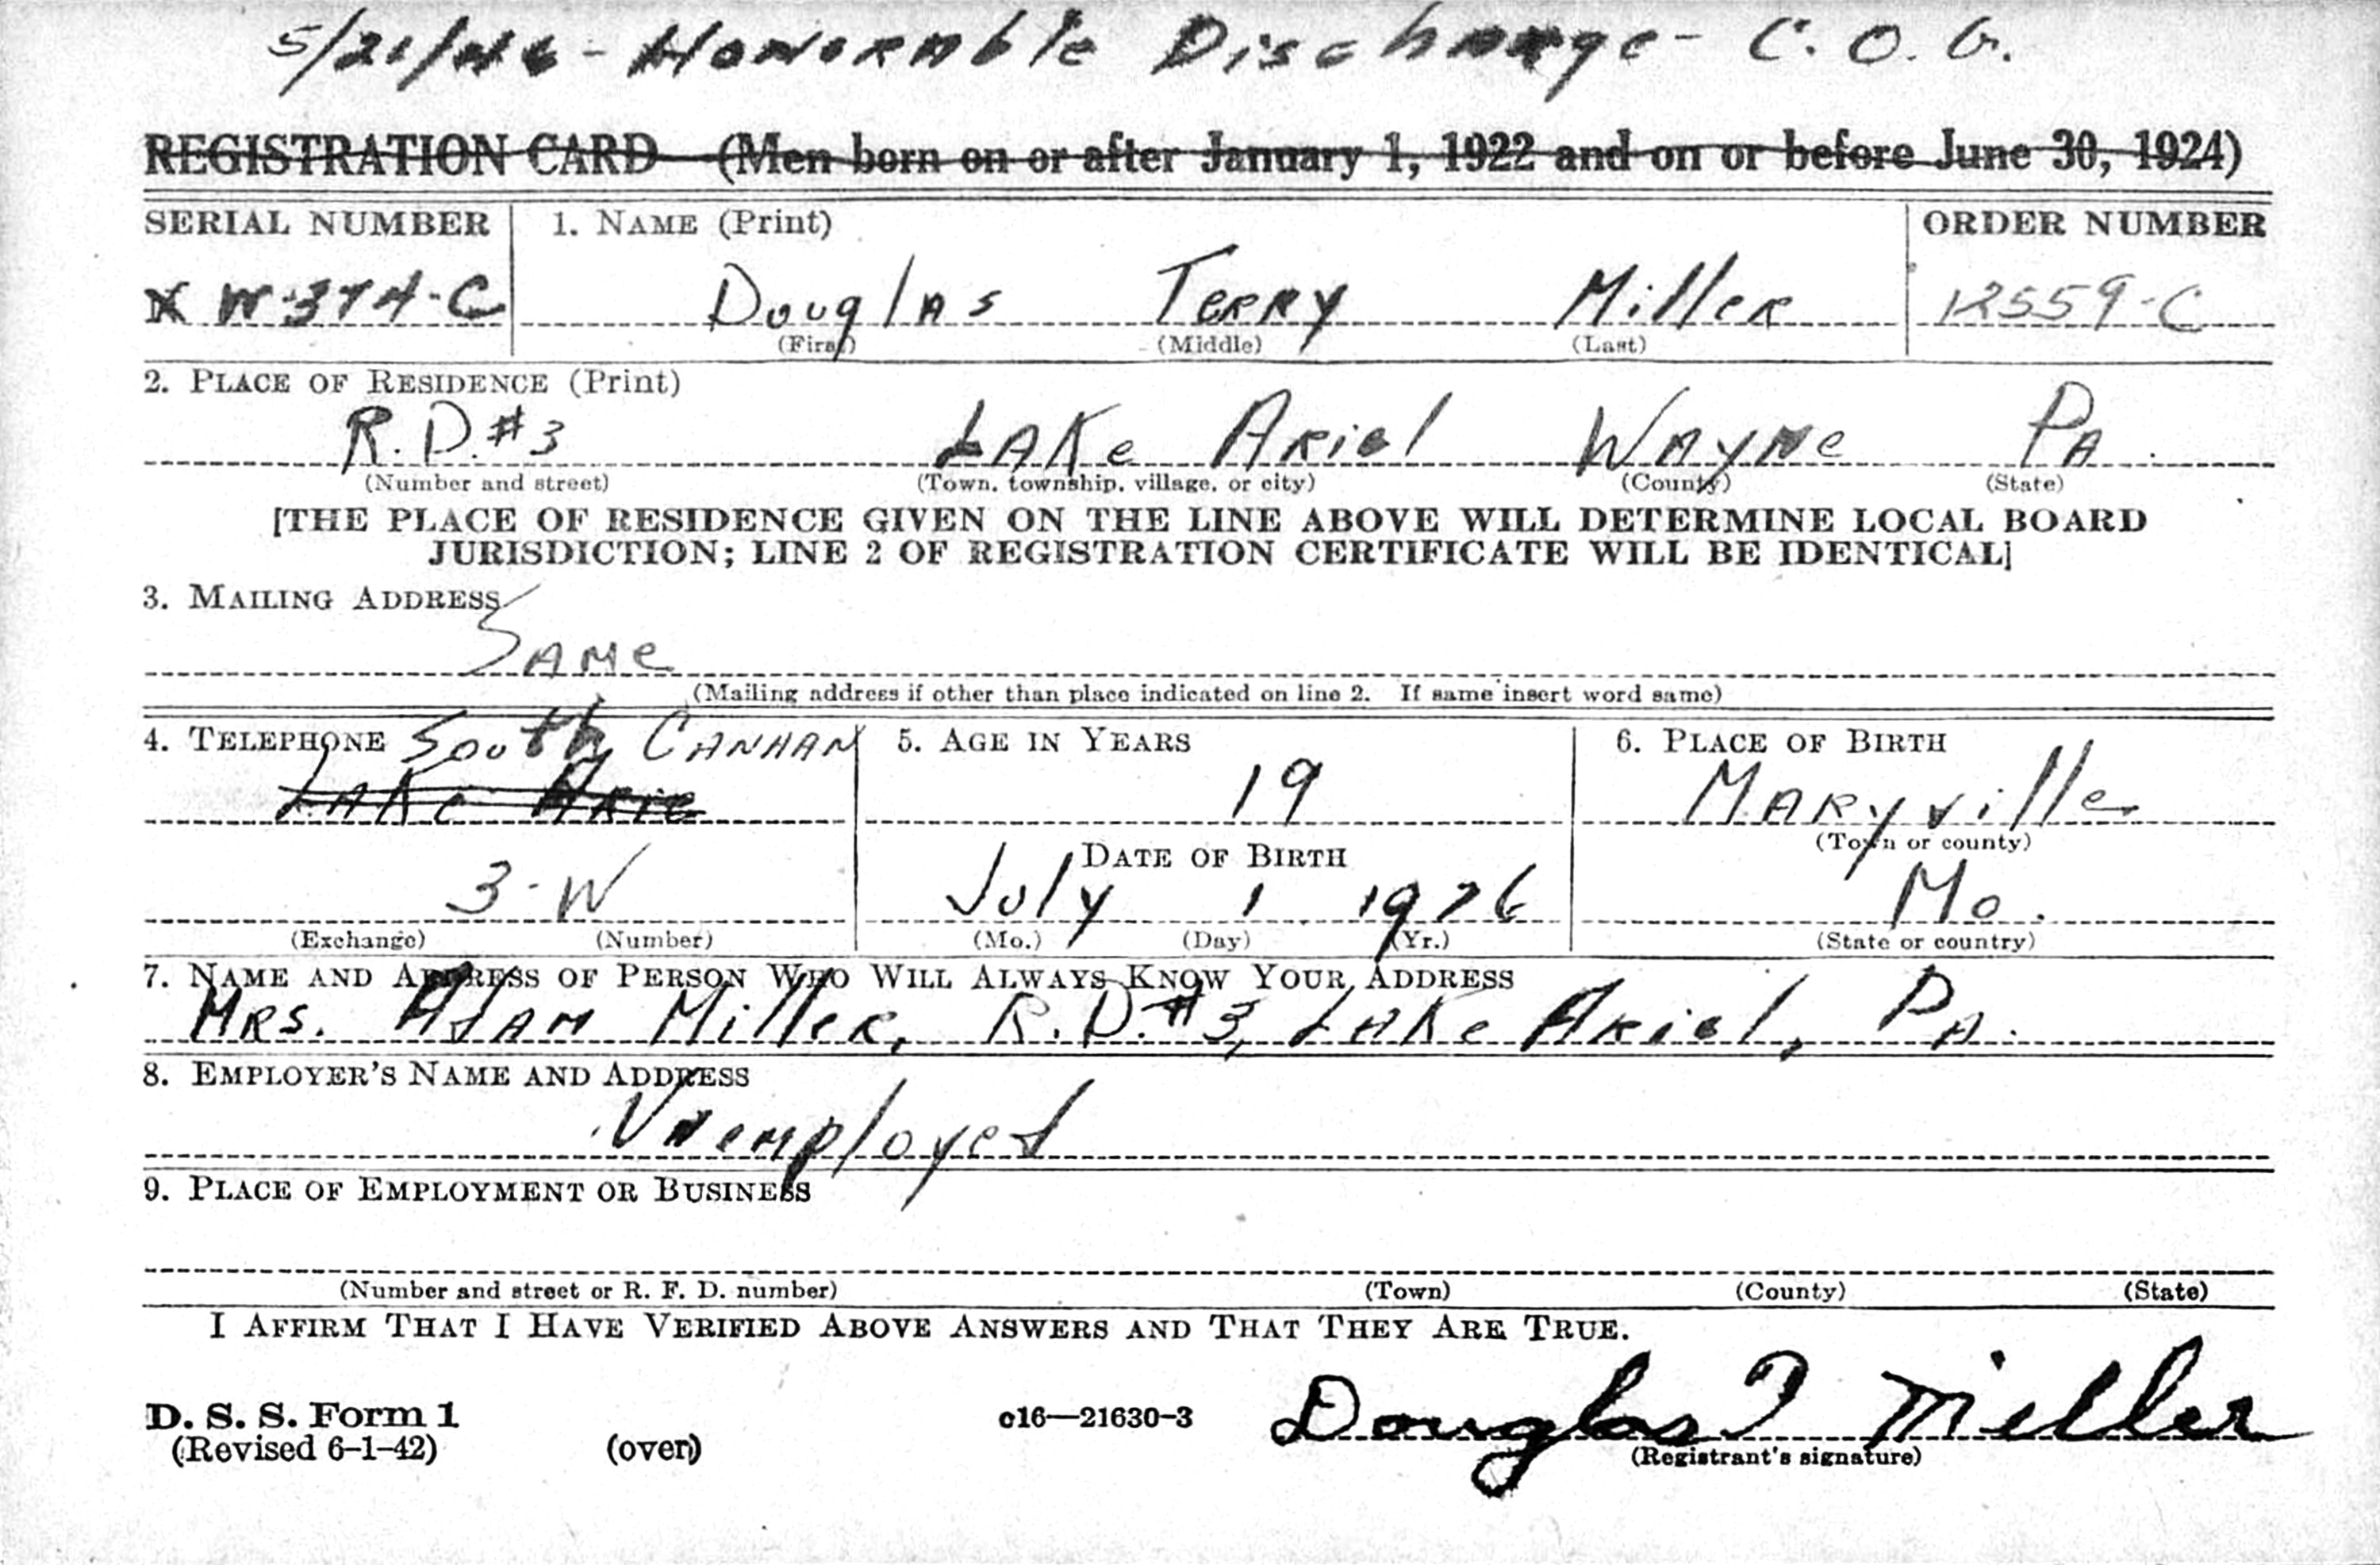 5/21/46 - Honorable Discharge - C.O.G.
REGISTRATION CARD—(Men born on or after January 1, 1922 and on or before June 30, 1924)
SERIAL NUMBER 1. NAME (Print) ORDER NUMBER
X W-374-C Douglas Terry Miller 12559-C
(First) (Middle) (Last)
2. PLACE OF RESIDENCE (Print)
R.D.#3 Lake Ariel Wayne Pa.
(Number and street) (Town, township, village, or city) (County) (State)
[THE PLACE OF RESIDENCE GIVEN ON THE LINE ABOVE WILL DETERMINE LOCAL BOARD
JURISDICTION; LINE 2 OF REGISTRATION CERTIFICATE WILL BE IDENTICAL]
3. MAILING ADDRESS
Same
(Mailing address if other than place indicated on line 2. If same insert word same)
4. TELEPHONE South Canaan 5. AGE IN YEARS 6. PLACE OF BIRTH
Lake Arie 19 Maryville
DATE OF BIRTH (Town or county)
3-W July 1 1926 Mo.
(Exchange) (Number) (Mo.) (Day) (Yr.) (State or country)
7. NAME AND ADDRESS OF PERSON WHO WILL ALWAYS KNOW YOUR ADDRESS
Mrs. Adam Miller, R.D.#3, Lake Ariel, Pa.
8. EMPLOYER'S NAME AND ADDRESS
Unemployed
9. PLACE OF EMPLOYMENT OR BUSINESS
(Number and street or R. F. D. number) (Town) (County) (State)
I AFFIRM THAT I HAVE VERIFIED ABOVE ANSWERS AND THAT THEY ARE TRUE.
Douglas T Miller
D. S. S. Form 1 c16—21630-3
(Revised 6-1-42) (over) (Registrant's signature)